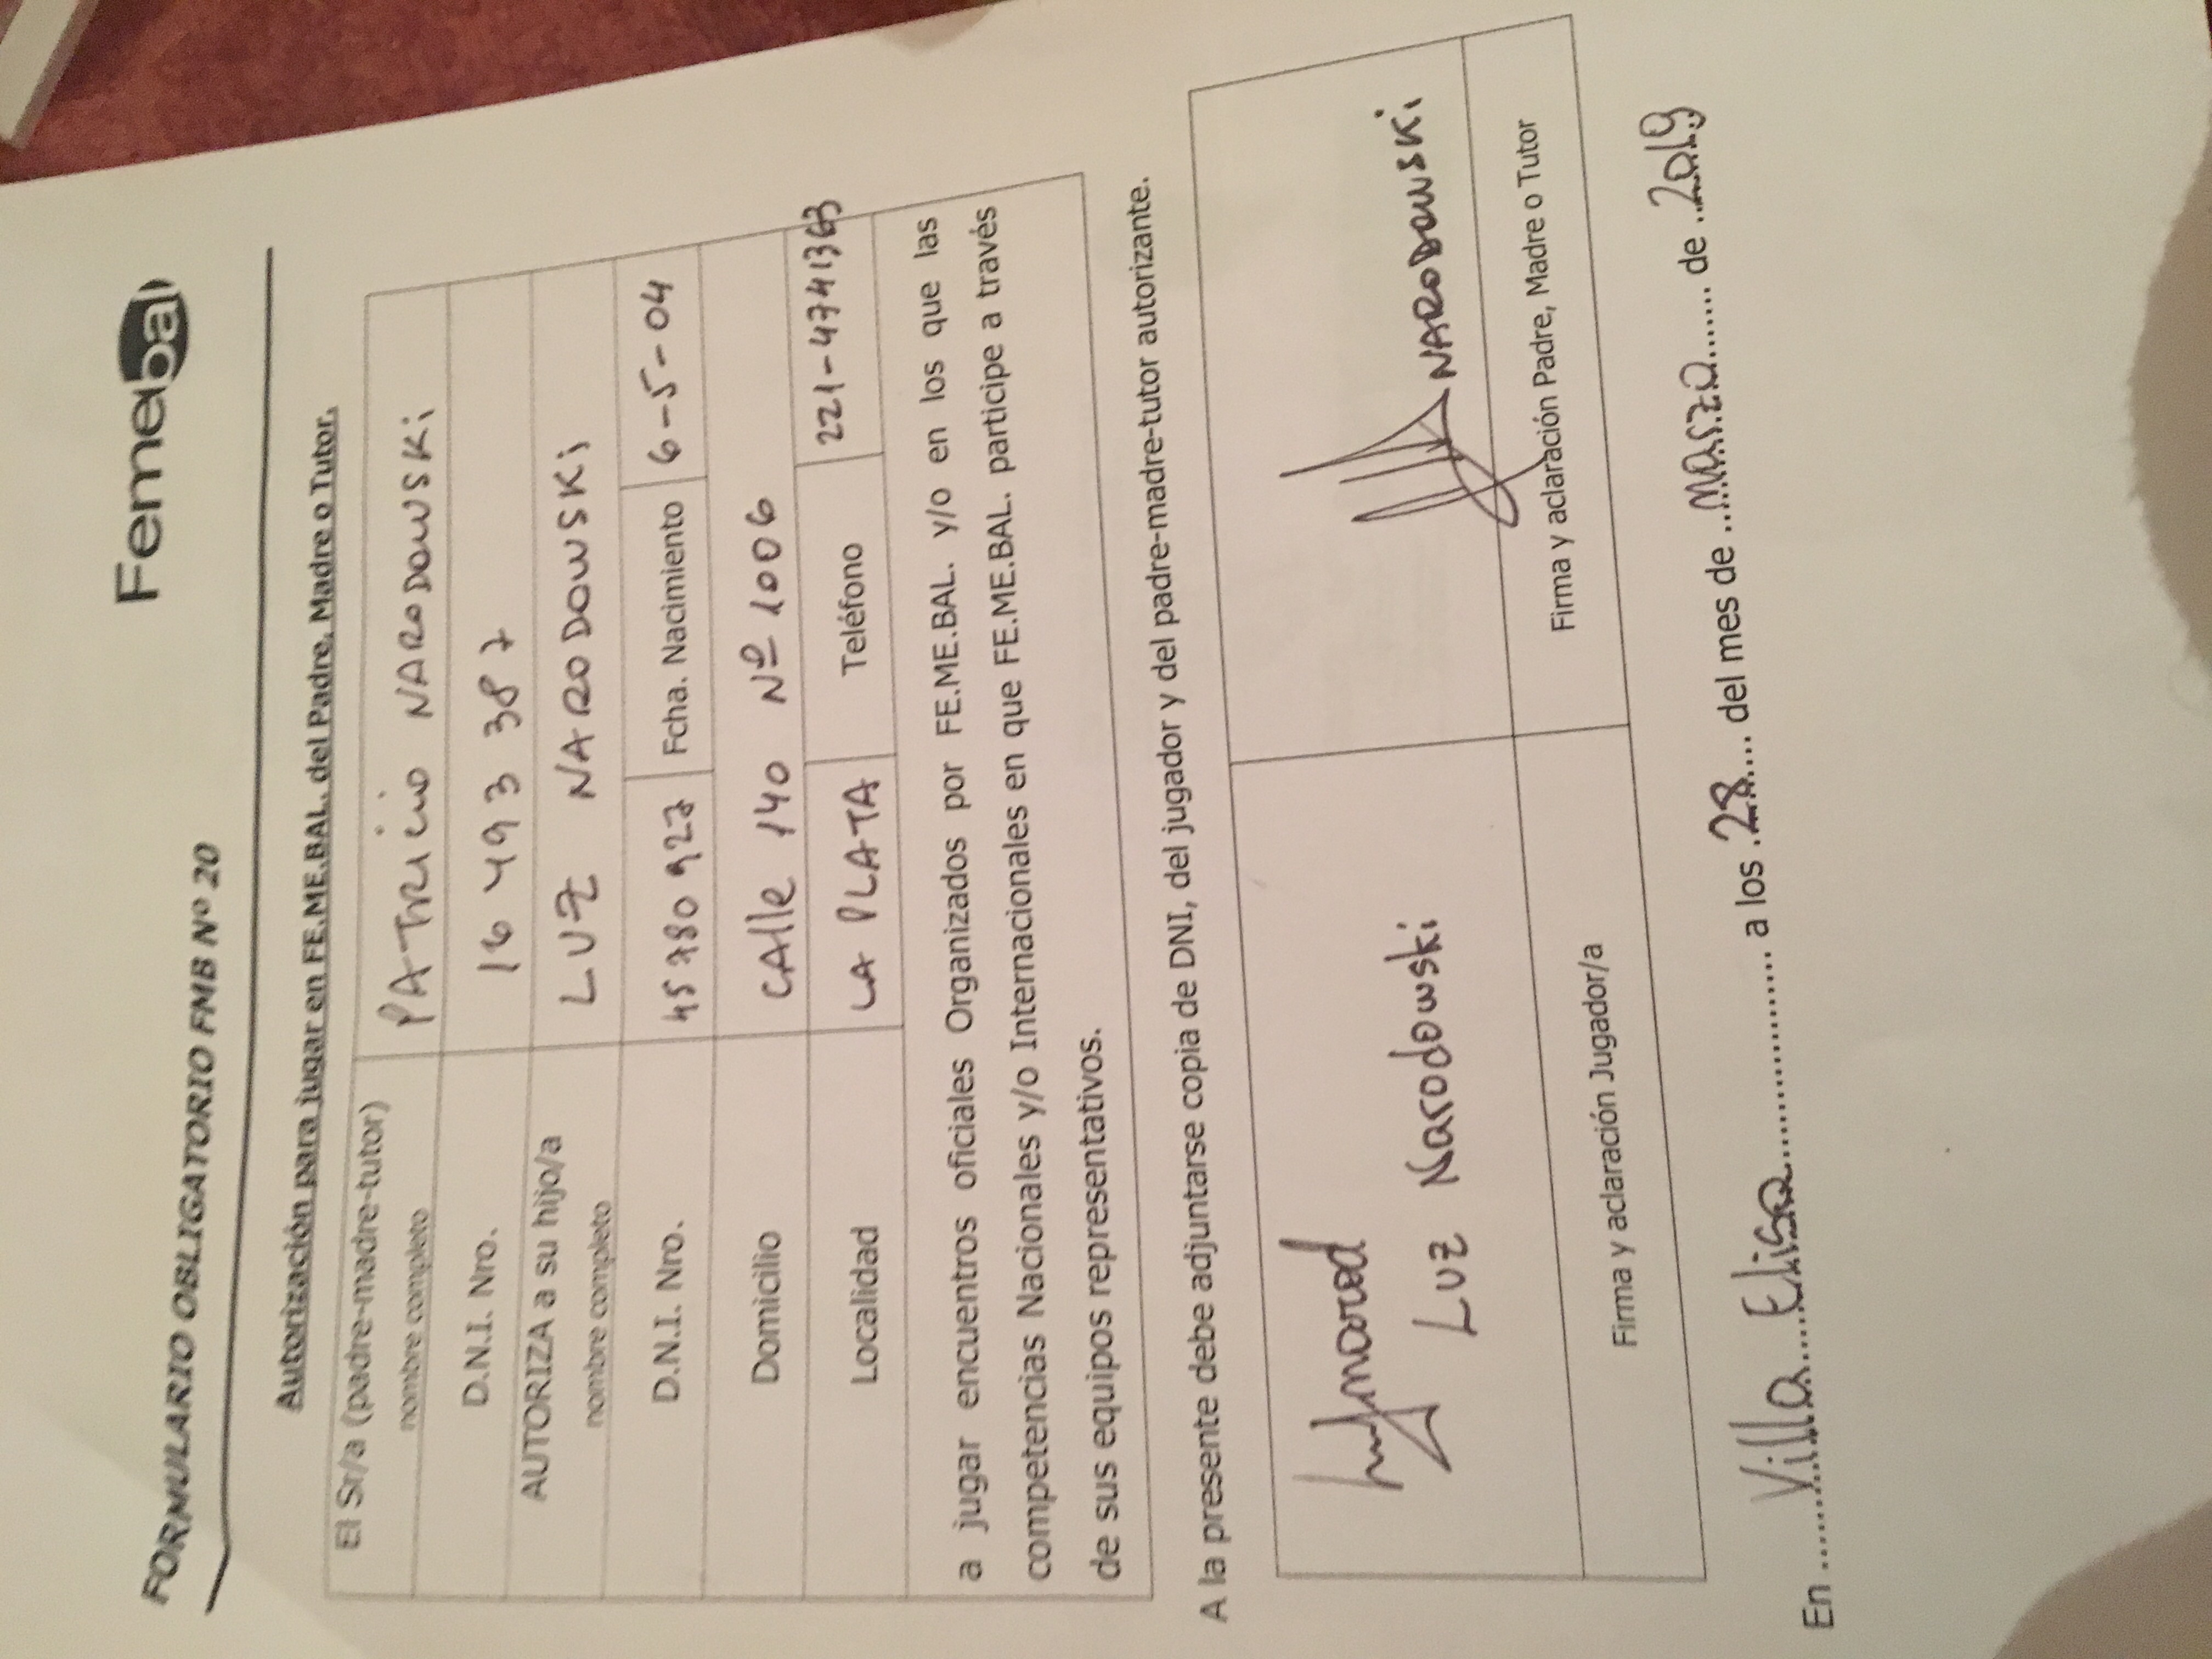 Femebal
FORMULARIO OBLIGATORIO FMB Nº 20
Autorización para jugar en FE.ME.BAL. del Padre, Madre o Tutor.
El Sr/a (padre-madre-tutor) PATRICIO NARODOWSKI
nombre completo
D.N.I. Nro. 16 493 387
AUTORIZA a su hijo/a LUZ NARODOWSKI
nombre completo
D.N.I. Nro. 45 780 927 Fcha. Nacimiento 6-5-04
Domicilio CAlle 140 Nº 1006
Localidad LA PLATA Teléfono 221-4741363
a jugar encuentros oficiales Organizados por FE.ME.BAL. y/o en los que las
competencias Nacionales y/o Internacionales en que FE.ME.BAL. participe a través
de sus equipos representativos.
A la presente debe adjuntarse copia de DNI, del jugador y del padre-madre-tutor autorizante.
Luz Narodowski
NARODOWSKI
Firma y aclaración Jugador/a
Firma y aclaración Padre, Madre o Tutor
En Villa Elisa a los 28 del mes de marzo de 2019